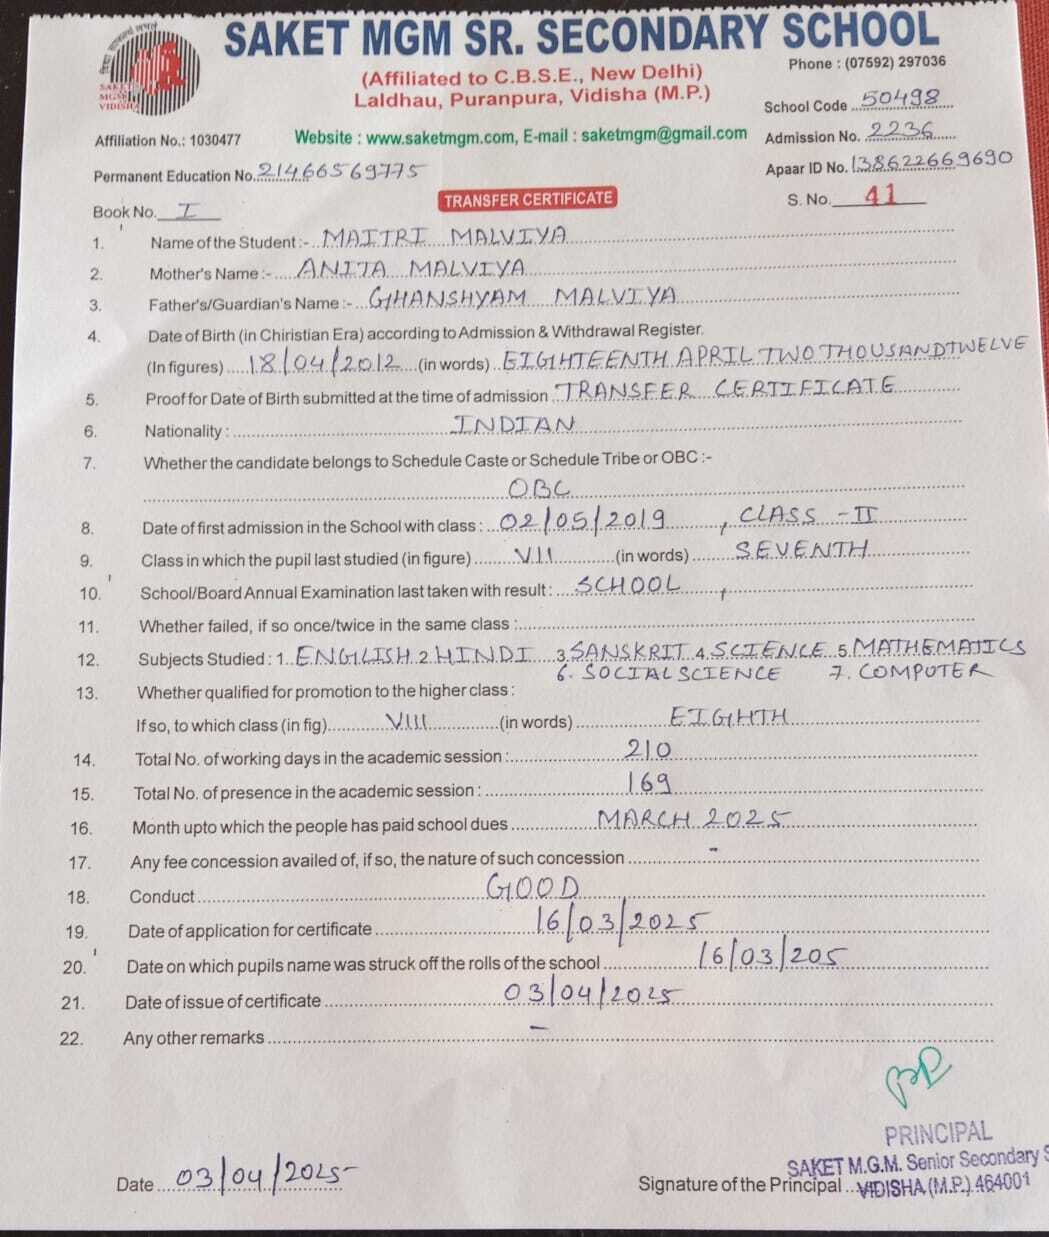 SAKET MGM SR. SECONDARY SCHOOL
(Affiliated to C.B.S.E., New Delhi)
Phone : (07592) 297036
Laldhau, Puranpura, Vidisha (M.P.)
SAKET
MGM
VIDISHA
School Code 50498
Affiliation No.: 1030477
Website : www.saketmgm.com, E-mail : saketmgm@gmail.com
Admission No. 2236
Permanent Education No. 21466569775
Apaar ID No. 138622669690
Book No. I
TRANSFER CERTIFICATE
S. No. 41
1. Name of the Student :- MAITRI MALVIYA
2. Mother's Name :- ANITA MALVIYA
3. Father's/Guardian's Name :- GHANSHYAM MALVIYA
4. Date of Birth (in Chiristian Era) according to Admission & Withdrawal Register.
(In figures) 18/04/2012 (in words) EIGHTEENTH APRIL TWO THOUSAND TWELVE
5. Proof for Date of Birth submitted at the time of admission TRANSFER CERTIFICATE
6. Nationality : INDIAN
7. Whether the candidate belongs to Schedule Caste or Schedule Tribe or OBC :-
OBC
8. Date of first admission in the School with class : 02/05/2019, CLASS - II
9. Class in which the pupil last studied (in figure) VII (in words) SEVENTH
10. School/Board Annual Examination last taken with result : SCHOOL,
11. Whether failed, if so once/twice in the same class :
12. Subjects Studied : 1. ENGLISH 2. HINDI 3. SANSKRIT 4. SCIENCE 5. MATHEMATICS
6. SOCIAL SCIENCE 7. COMPUTER
13. Whether qualified for promotion to the higher class :
If so, to which class (in fig) VIII (in words) EIGHTH
14. Total No. of working days in the academic session : 210
15. Total No. of presence in the academic session : 169
16. Month upto which the people has paid school dues MARCH 2025
17. Any fee concession availed of, if so, the nature of such concession -
18. Conduct GOOD
19. Date of application for certificate 16/03/2025
20. Date on which pupils name was struck off the rolls of the school 16/03/205
21. Date of issue of certificate 03/04/2025
22. Any other remarks –
PRINCIPAL
SAKET M.G.M. Senior Secondary S
Date 03/04/2025
Signature of the Principal VIDISHA (M.P.) 464001